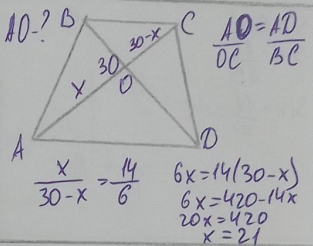 AO-?
B
C
30-x
30
x
O
A
D
AO/OC = AD/BC
x/30-x = 14/6
6x=14(30-x)
6x=420-14x
20x=420
x=21